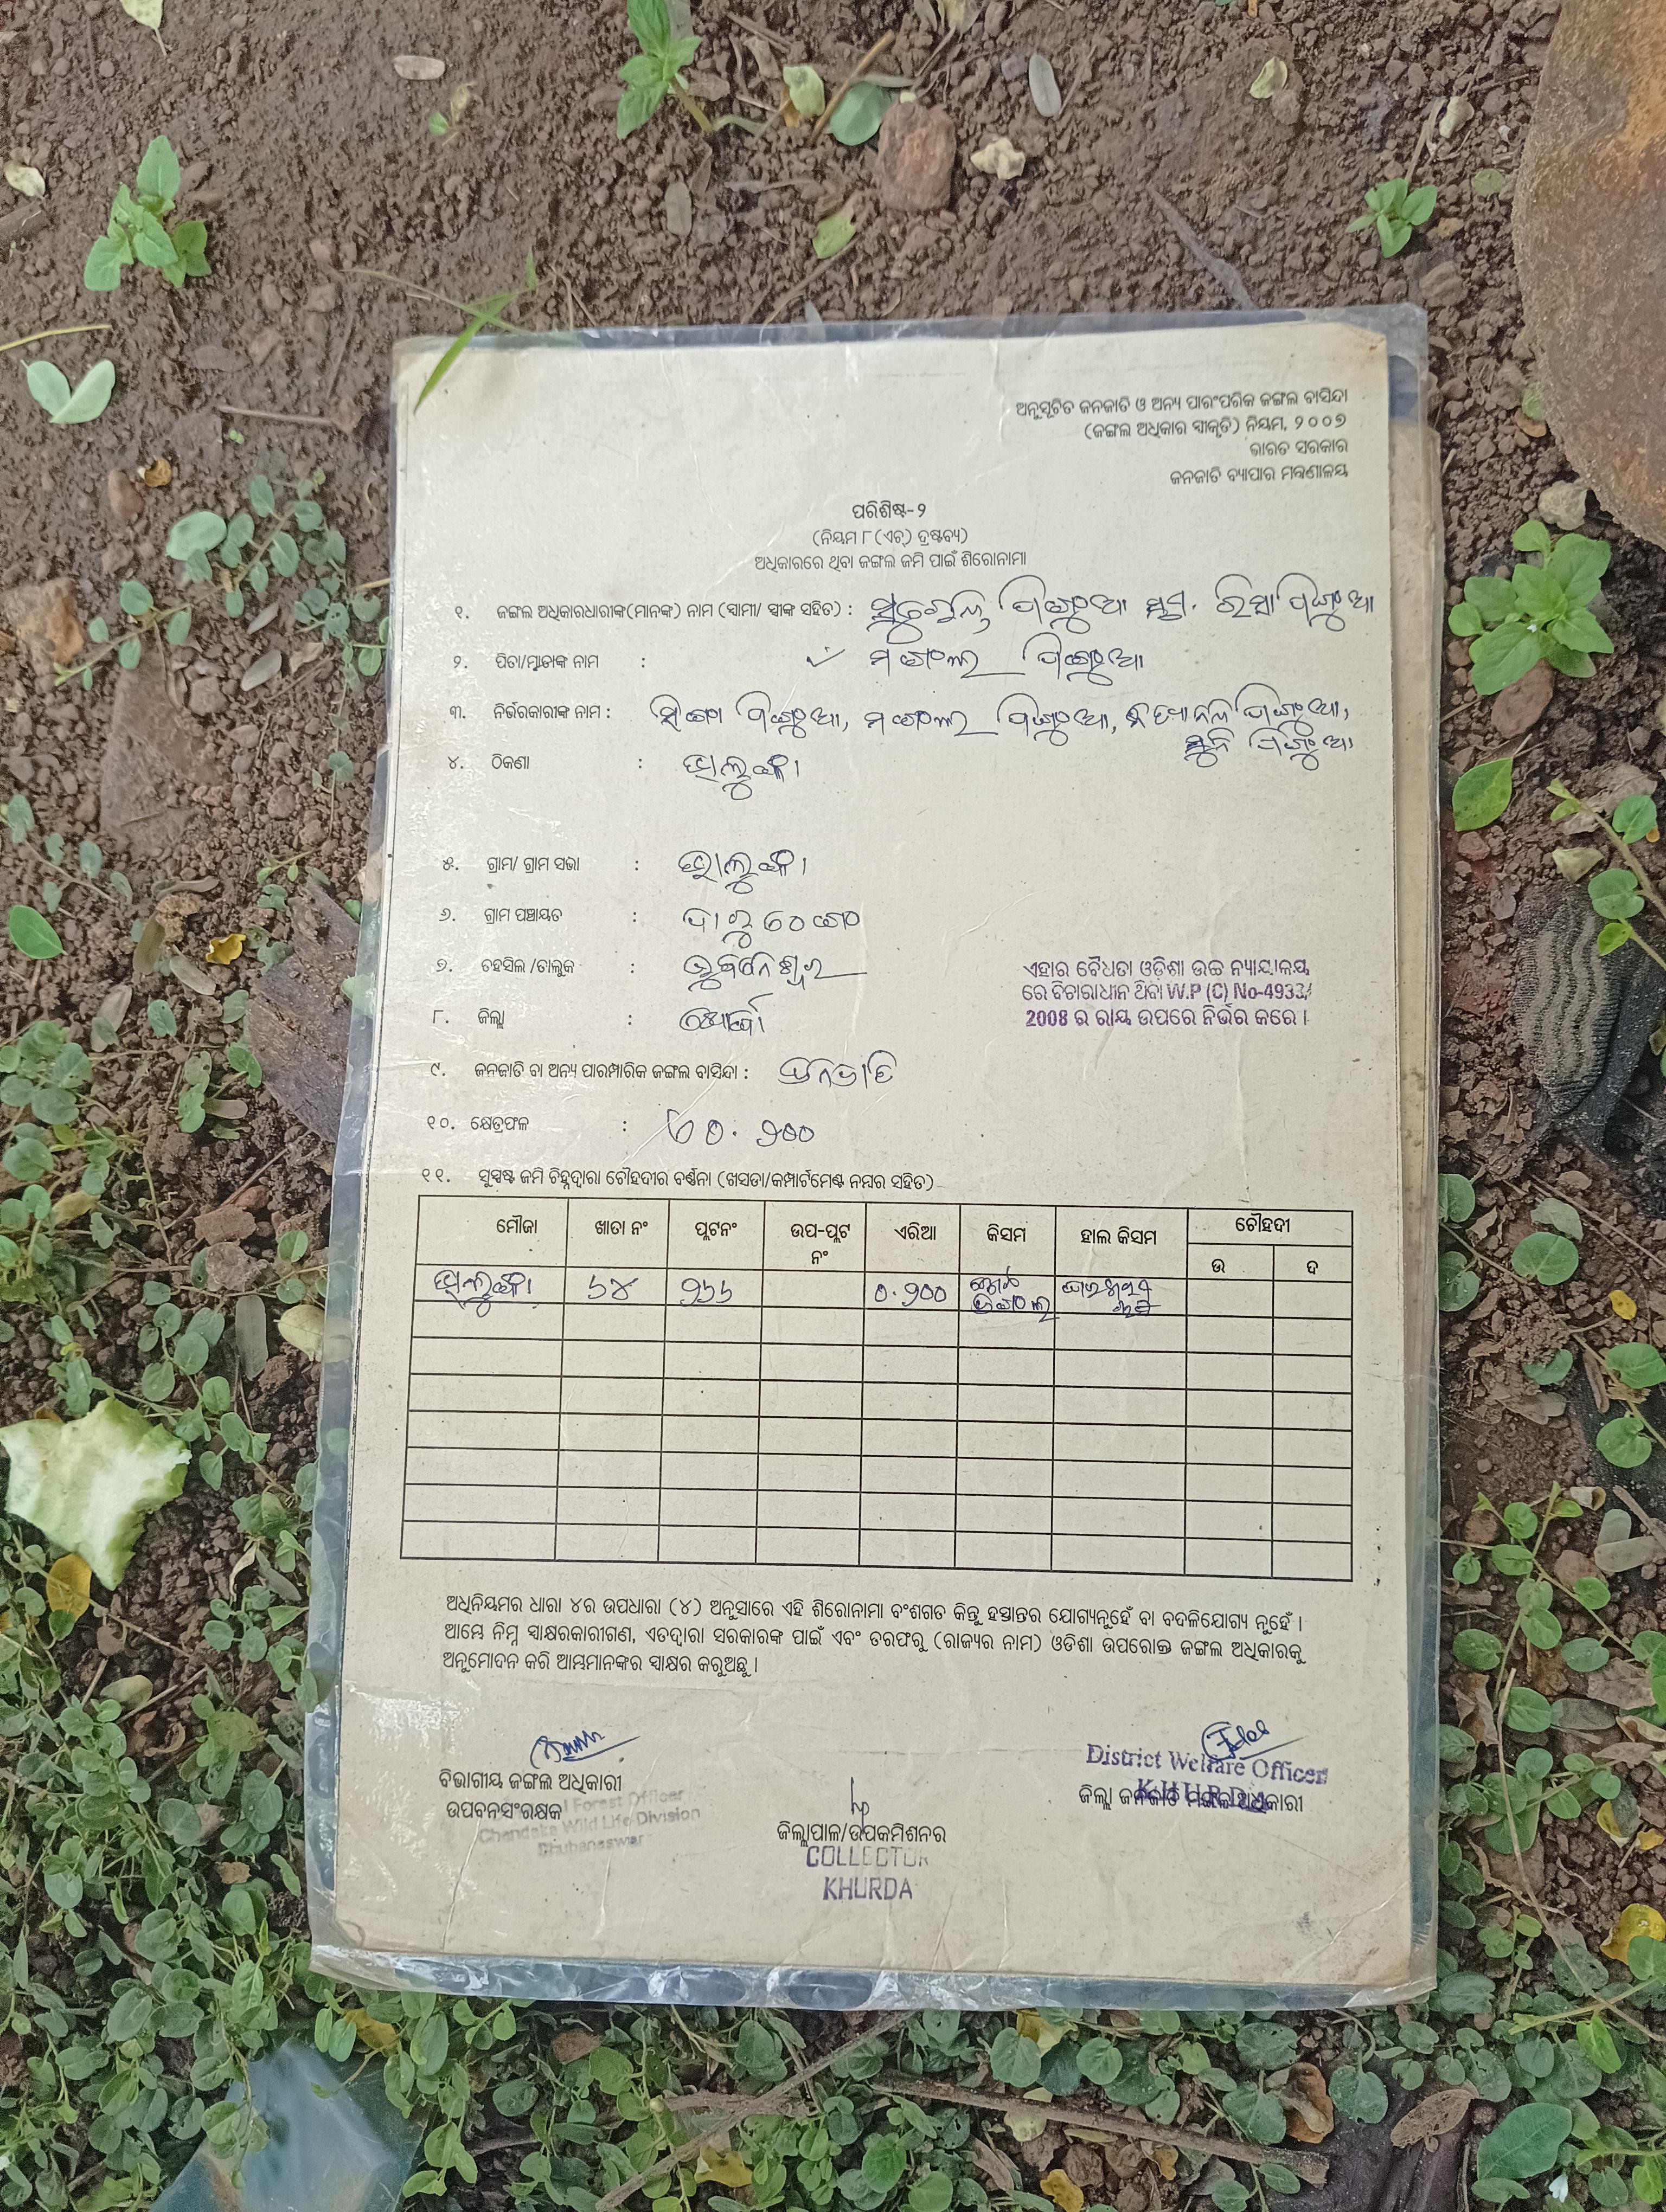 ଅନୁସୂଚିତ ଜନଜାତି ଓ ଅନ୍ୟ ପାରଂପରିକ ଜଙ୍ଗଲ ବାସିନ୍ଦା
(ଜଙ୍ଗଲ ଅଧିକାର ସ୍ୱୀକୃତି) ନିୟମ, ୨୦୦୭
ଭାରତ ସରକାର
ଜନଜାତି ବ୍ୟାପାର ମନ୍ତ୍ରଣାଳୟ
ପରିଶିଷ୍ଟ-୨
(ନିୟମ ୮(ଏଚ୍) ଦ୍ରଷ୍ଟବ୍ୟ)
ଅଧିକାରରେ ଥିବା ଜଙ୍ଗଲ ଜମି ପାଇଁ ଶିରୋନାମା
୧. ଜଙ୍ଗଲ ଅଧିକାରଧାରୀଙ୍କ(ମାନଙ୍କ) ନାମ (ସ୍ୱାମୀ/ ସ୍ତ୍ରୀଙ୍କ ସହିତ) :
୨. ପିତା/ମାତାଙ୍କ ନାମ :
୩. ନିର୍ଭରକାରୀଙ୍କ ନାମ :
୪. ଠିକଣା : ଭାଲୁଙ୍କା
୫. ଗ୍ରାମ/ ଗ୍ରାମ ସଭା : ଭାଲୁଙ୍କା
୬. ଗ୍ରାମ ପଞ୍ଚାୟତ :
୭. ତହସିଲ /ତାଲୁକ : ଭୁବନେଶ୍ୱର
ଏହାର ବୈଧତା ଓଡ଼ିଶା ଉଚ୍ଚ ନ୍ୟାୟାଳୟ
ରେ ବିଚାରାଧୀନ ଥିବା W.P (C) No-4933/
2008 ର ରାୟ ଉପରେ ନିର୍ଭର କରେ ।
୮. ଜିଲ୍ଲା : ଖୋର୍ଦ୍ଧା
୯. ଜନଜାତି ବା ଅନ୍ୟ ପାରମ୍ପାରିକ ଜଙ୍ଗଲ ବାସିନ୍ଦା : ଜନଜାତି
୧୦. କ୍ଷେତ୍ରଫଳ : ୦.୨୦୦
୧୧. ସୁସ୍ପଷ୍ଟ ଜମି ଚିହ୍ନଦ୍ୱାରା ଚୌହଦୀର ବର୍ଣ୍ଣନା (ଖସଡା/କମ୍ପାର୍ଟମେଣ୍ଟ ନମ୍ବର ସହିତ)
ମୌଜା ଖାତା ନଂ ପ୍ଲଟନଂ ଉପ-ପ୍ଲଟ ନଂ ଏରିଆ କିସମ ହାଲ କିସମ ଚୌହଦୀ
ଉ ଦ
ଭାଲୁଙ୍କା ୬୪ ୨୬୬ ୦.୨୦୦
ଅଧିନିୟମର ଧାରା ୪ର ଉପଧାରା (୪) ଅନୁସାରେ ଏହି ଶିରୋନାମା ବଂଶଗତ କିନ୍ତୁ ହସ୍ତାନ୍ତର ଯୋଗ୍ୟନୁହେଁ ବା ବଦଳିଯୋଗ୍ୟ ନୁହେଁ ।
ଆମ୍ଭେ ନିମ୍ନ ସ୍ୱାକ୍ଷରକାରୀଗଣ, ଏତଦ୍ୱାରା ସରକାରଙ୍କ ପାଇଁ ଏବଂ ତରଫରୁ (ରାଜ୍ୟର ନାମ) ଓଡିଶା ଉପରୋକ୍ତ ଜଙ୍ଗଲ ଅଧିକାରକୁ
ଅନୁମୋଦନ କରି ଆମ୍ଭମାନଙ୍କର ସ୍ୱାକ୍ଷର କରୁଅଛୁ ।
ବିଭାଗୀୟ ଜଙ୍ଗଲ ଅଧିକାରୀ
ଉପବନସଂରକ୍ଷକ
Forest Officer
Chandaka Wild Life Division
Bhubaneswar
ଜିଲ୍ଲାପାଳ/ଉପକମିଶନର
COLLECTOR
KHURDA
District Welfare Officer
KHURDA
ଜିଲ୍ଲା ଜନଜାତି ମଙ୍ଗଳ ଅଧିକାରୀ